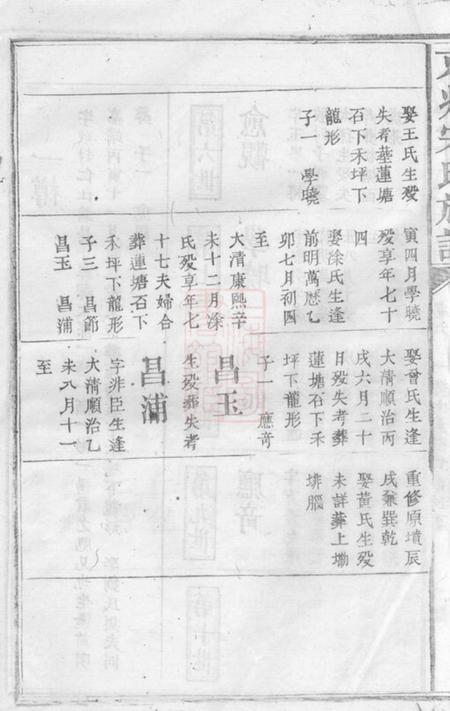 娶王氏生殁
失考塟蓮塘
石下禾坪下
龍形
子一　學曉
寅四月學曉
殁享年七十
四
娶涂氏生逢
前明萬厯乙
卯七月初四
至
大清康熙辛
未十二月涂
氏殁享年七
十七夫婦合
葬蓮塘石下
禾坪下龍形
子三　昌節
昌玉　昌浦
娶曾氏生逢
大清順治丙
戌六月二十
日殁失考葬
蓮塘石下禾
坪下龍形
子一　應奇
昌玉
生殁葬失考
昌浦
字非臣生逢
大清順治乙
未八月十一
至
重修原墳辰
戌兼巽乾
娶黃氏生殁
未詳葬上坳
排腦